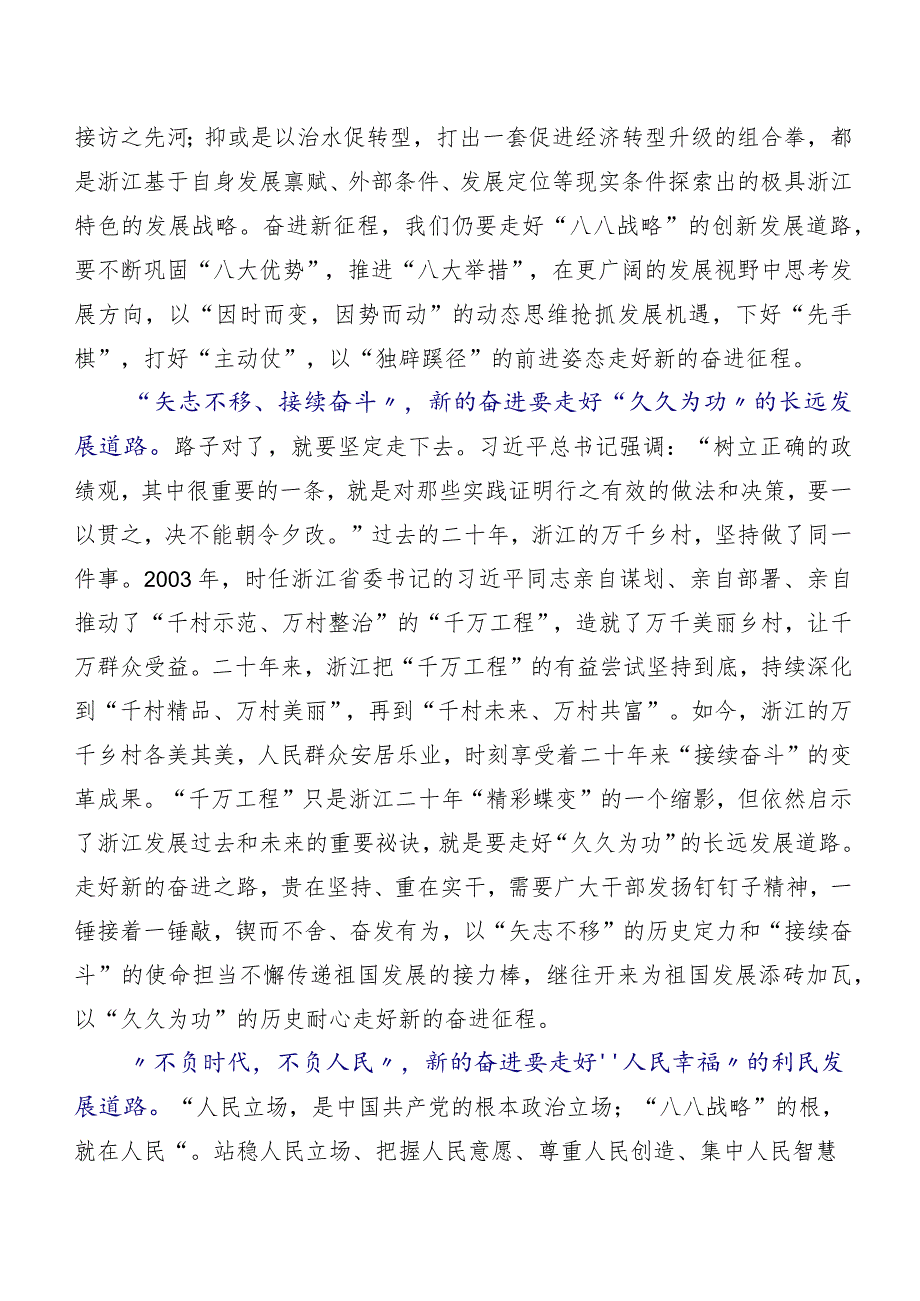 接访之先河；抑或是以治水促转型，打出一套促进经济转型升级的组合拳，都
是浙江基于自身发展禀赋、外部条件、发展定位等现实条件探索出的极具浙江
特色的发展战略。奋进新征程，我们仍要走好“八八战略”的创新发展道路，
要不断巩固“八大优势”，推进“八大举措”，在更广阔的发展视野中思考发
展方向，以“因时而变，因势而动”的动态思维抢抓发展机遇，下好“先手
棋”，打好“主动仗”，以“独辟蹊径”的前进姿态走好新的奋进征程。
“矢志不移、接续奋斗〃，新的奋进要走好“久久为功〃的长远发
展道路。路子对了，就要坚定走下去。习近平总书记强调：“树立正确的政
绩观，其中很重要的一条，就是对那些实践证明行之有效的做法和决策，要一
以贯之，决不能朝令夕改。”过去的二十年，浙江的万千乡村，坚持做了同一
件事。2003年，时任浙江省委书记的习近平同志亲自谋划、亲自部署、亲自
推动了“千村示范、万村整治”的“千万工程”，造就了万千美丽乡村，让千
万群众受益。二十年来，浙江把“千万工程”的有益尝试坚持到底，持续深化
到“千村精品、万村美丽”，再到“千村未来、万村共富”。如今，浙江的万
千乡村各美其美，人民群众安居乐业，时刻享受着二十年来“接续奋斗”的变
革成果。“千万工程”只是浙江二十年“精彩蝶变”的一个缩影，但依然启示
了浙江发展过去和未来的重要祕诀，就是要走好“久久为功”的长远发展道路。
走好新的奋进之路，贵在坚持、重在实干，需要广大干部发扬钉钉子精神，一
锤接着一锤敲，锲而不舍、奋发有为，以“矢志不移”的历史定力和“接续奋
斗”的使命担当不懈传递祖国发展的接力棒，继往开来为祖国发展添砖加瓦，
以“久久为功”的历史耐心走好新的奋进征程。
〃不负时代，不负人民〃，新的奋进要走好''人民幸福〃的利民发
展道路。“人民立场，是中国共产党的根本政治立场；“八八战略”的根，
就在人民“。站稳人民立场、把握人民意愿、尊重人民创造、集中人民智慧